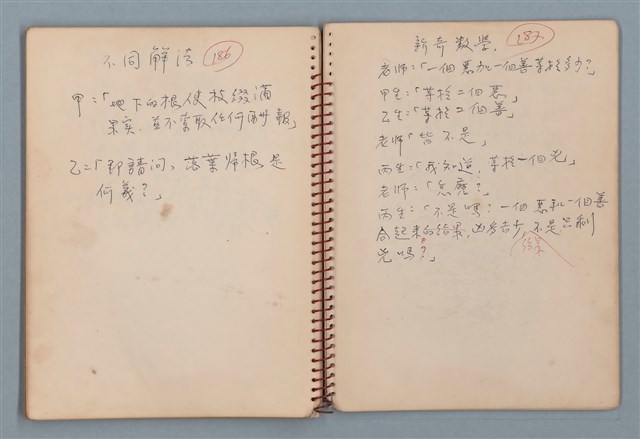 不同解法 186
甲:「地下的根使枝綴滿
果实,並不索取任何酬報」
乙:「那請問,落葉归根是
何義?」
新奇数學. 187
老师:「一個惡加一個善等於多少?」
甲生:「等於二個惡」
乙生:「等於二個善」
老师「皆不是」
丙生:「我知道,等於一個兇」
老师:「怎麼?」
丙生:「不是嗎:一個惡和一個善
合起來的结果,凶多吉少,不是只剩
兇嗎?」